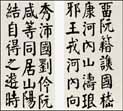 留阮籍譙國嵇
康河內山濤琅
邪王戎河內向
秀沛國劉伶阮
咸等同居山陽
結自得之遊時